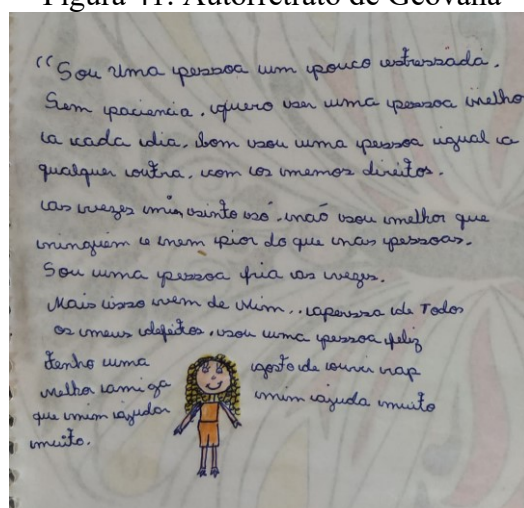 Figura 41: Autorretrato de Geovana
"Sou uma pessoa um pouco estressada.
Sem paciencia, quero ser uma pessoa melho
a cada dia. Bom sou uma pessoa igual a
qualquer outra, com os memos direitos.
as vezes mim sinto só, não sou melhor que
ninguém e nem pior do que nas pessoas.
Sou uma pessoa fria as vezes.
Mais isso vem de Mim.. apersza de Todos
os meus defeitos, sou uma pessoa feliz
tenho uma gosto de ouvir rap
melhor amiga mim ajuda muito
que mim ajudar
muito.